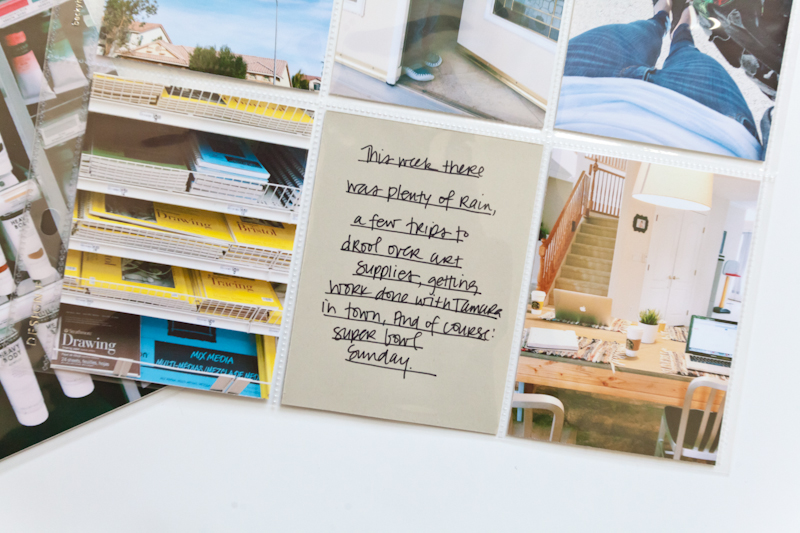 Drawing
Bristol
Tracing
Drawing
MIX MEDIA
This week there
was plenty of rain,
a few trips to
drool over art
supplies, getting
work done with Tamara
in town, And of course:
super bowl
Sunday.